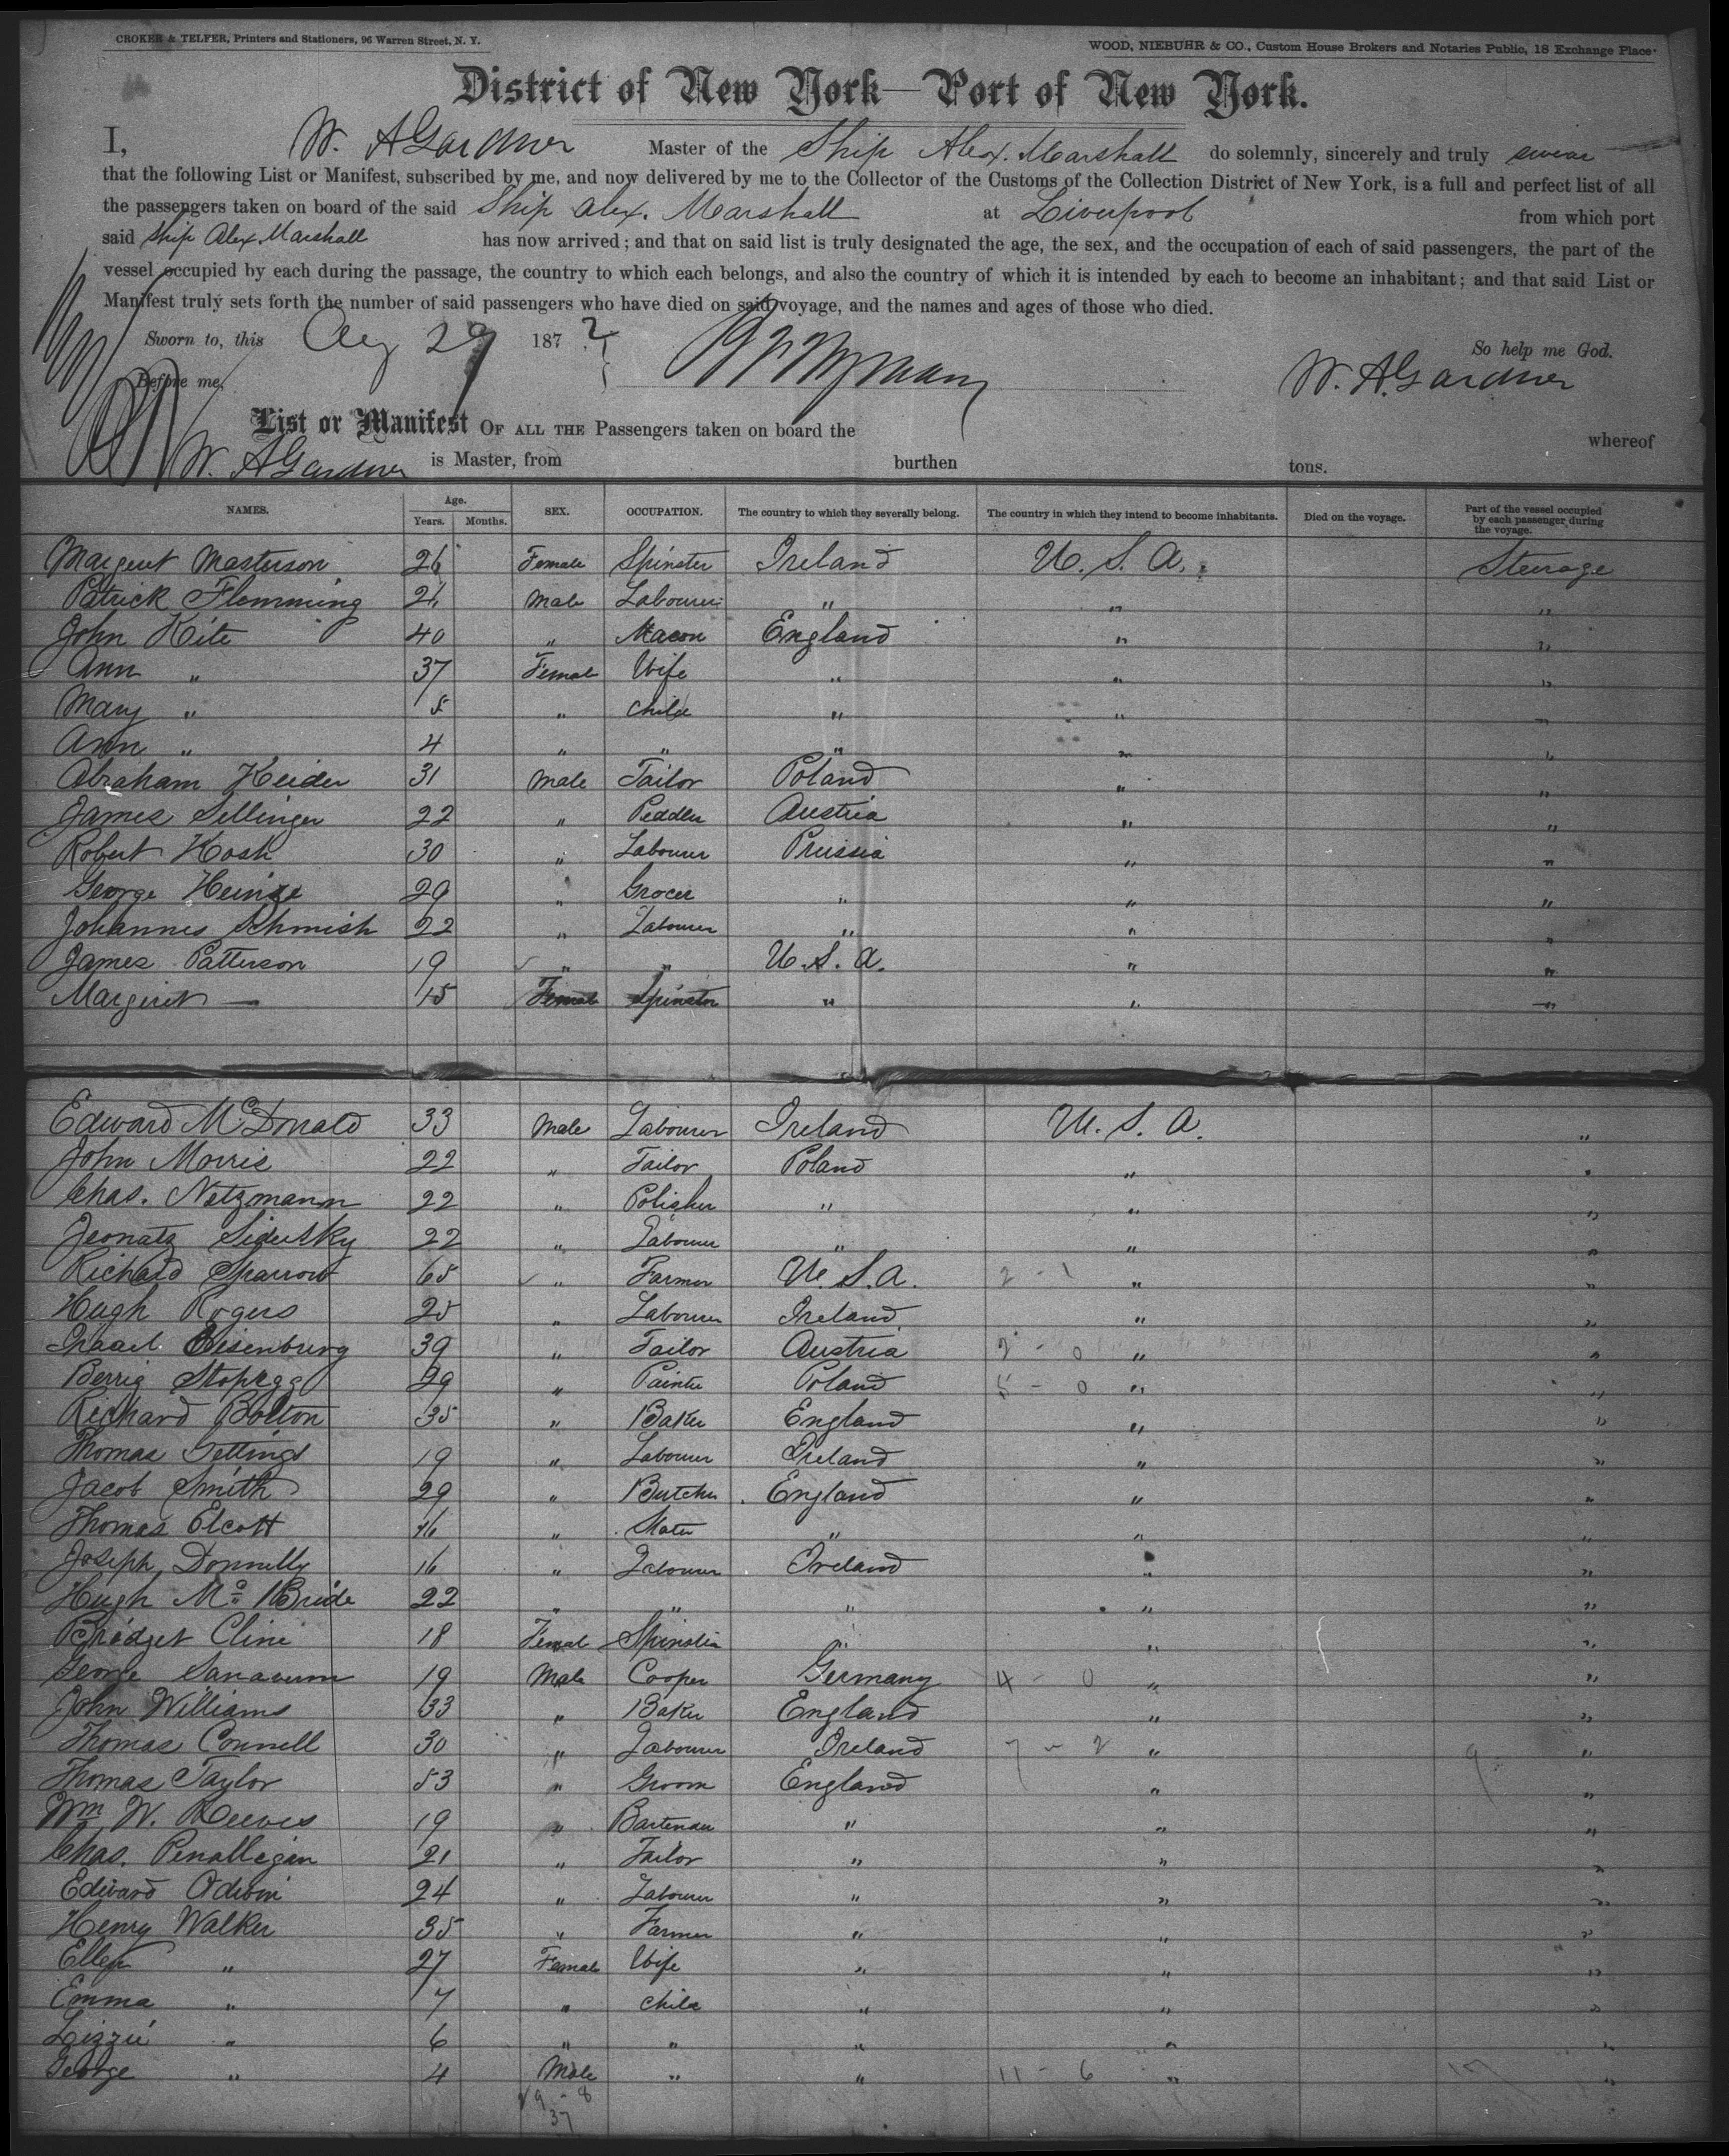 CROKER & TELFER, Printers and Stationers, 96 Warren Street, N. Y.
WOOD, NIEBUHR & CO., Custom House Brokers and Notaries Public, 18 Exchange Place.
District of New York—Port of New York.
I, W. A Gardner Master of the Ship Alex. Marshall do solemnly, sincerely and truly swear
that the following List or Manifest, subscribed by me, and now delivered by me to the Collector of the Customs of the Collection District of New York, is a full and perfect list of all
the passengers taken on board of the said Ship Alex. Marshall at Liverpool from which port
said Ship Alex Marshall has now arrived; and that on said list is truly designated the age, the sex, and the occupation of each of said passengers, the part of the
vessel occupied by each during the passage, the country to which each belongs, and also the country of which it is intended by each to become an inhabitant; and that said List or
Manifest truly sets forth the number of said passengers who have died on said voyage, and the names and ages of those who died.
Sworn to, this Aug 29 1872
So help me God.
Before me, W. A. Gardner
List or Manifest OF ALL THE Passengers taken on board the whereof
W. A Gardner is Master, from burthen tons.
NAMES. Age. Years. Months. SEX. OCCUPATION. The country to which they severally belong. The country in which they intend to become inhabitants. Died on the voyage. Part of the vessel occupied by each passenger during the voyage.
Margeret Masterson 26 Female Spinster Ireland U. S. A. Steerage
Patrick Flemming 21 Male Labourer " " "
John Kite 40 " Mason England " "
Ann " 37 Female Wife " " "
Mary " 5 " Child " " "
Ann " 4 " " " " "
Abraham Keider 31 Male Tailor Poland " "
James Sellinger 22 " Pedder Austria " "
Robert Kosh 30 " Labourer Prussia " "
George Heinze 29 " Grocer " " "
Johannes Schmish 22 " Labourer " " "
James Patterson 19 " " U. S. A. " "
Margeret — 15 Female Spinster " " "
Edward McDonald 33 Male Labourer Ireland U. S. A. "
John Morris 22 " Tailor Poland " "
Chas. Netzmann 22 " Polisher " " "
Jeonatz Sidutsky 22 " Labourer " " "
Richard Sparrow 65 " Farmer U. S. A. 2 - 1 " "
Hugh Rogers 25 " Labourer Ireland " "
Isaael Eisenburg 39 " Tailor Austria 2 - 0 " "
Berrig 29 " Painter Poland 5 - 0 " "
Richard Bolton 35 " Baker England " "
Thomas Gettings 19 " Labourer Ireland " "
Jacob Smith 29 " Butcher England " "
Thomas Elcott 16 " " " "
Joseph Donnelly 16 " Labourer Ireland " "
Hugh McBride 22 " " " " "
Bridget Cline 18 Femal Spinster " " "
George Sanavum 19 Male Cooper Germany 4 - 0 " "
John Williams 33 " Baker England " "
Thomas Connell 30 " Labourer Ireland 7 - 2 " 9 "
Thomas Taylor 53 " Groom England " "
Wm W. Reeves 19 " Bartender " " "
Chas. Penallegan 21 " Tailor " " "
Edward Odwin 24 " Labourer " " "
Henry Walker 35 " Farmer " " "
Ellen " 27 Female Wife " " "
Emma " 7 " Child " " "
Lizzie " 6 " " " " "
George " 4 Male " " 11 - 6 " "
29 - 8
37